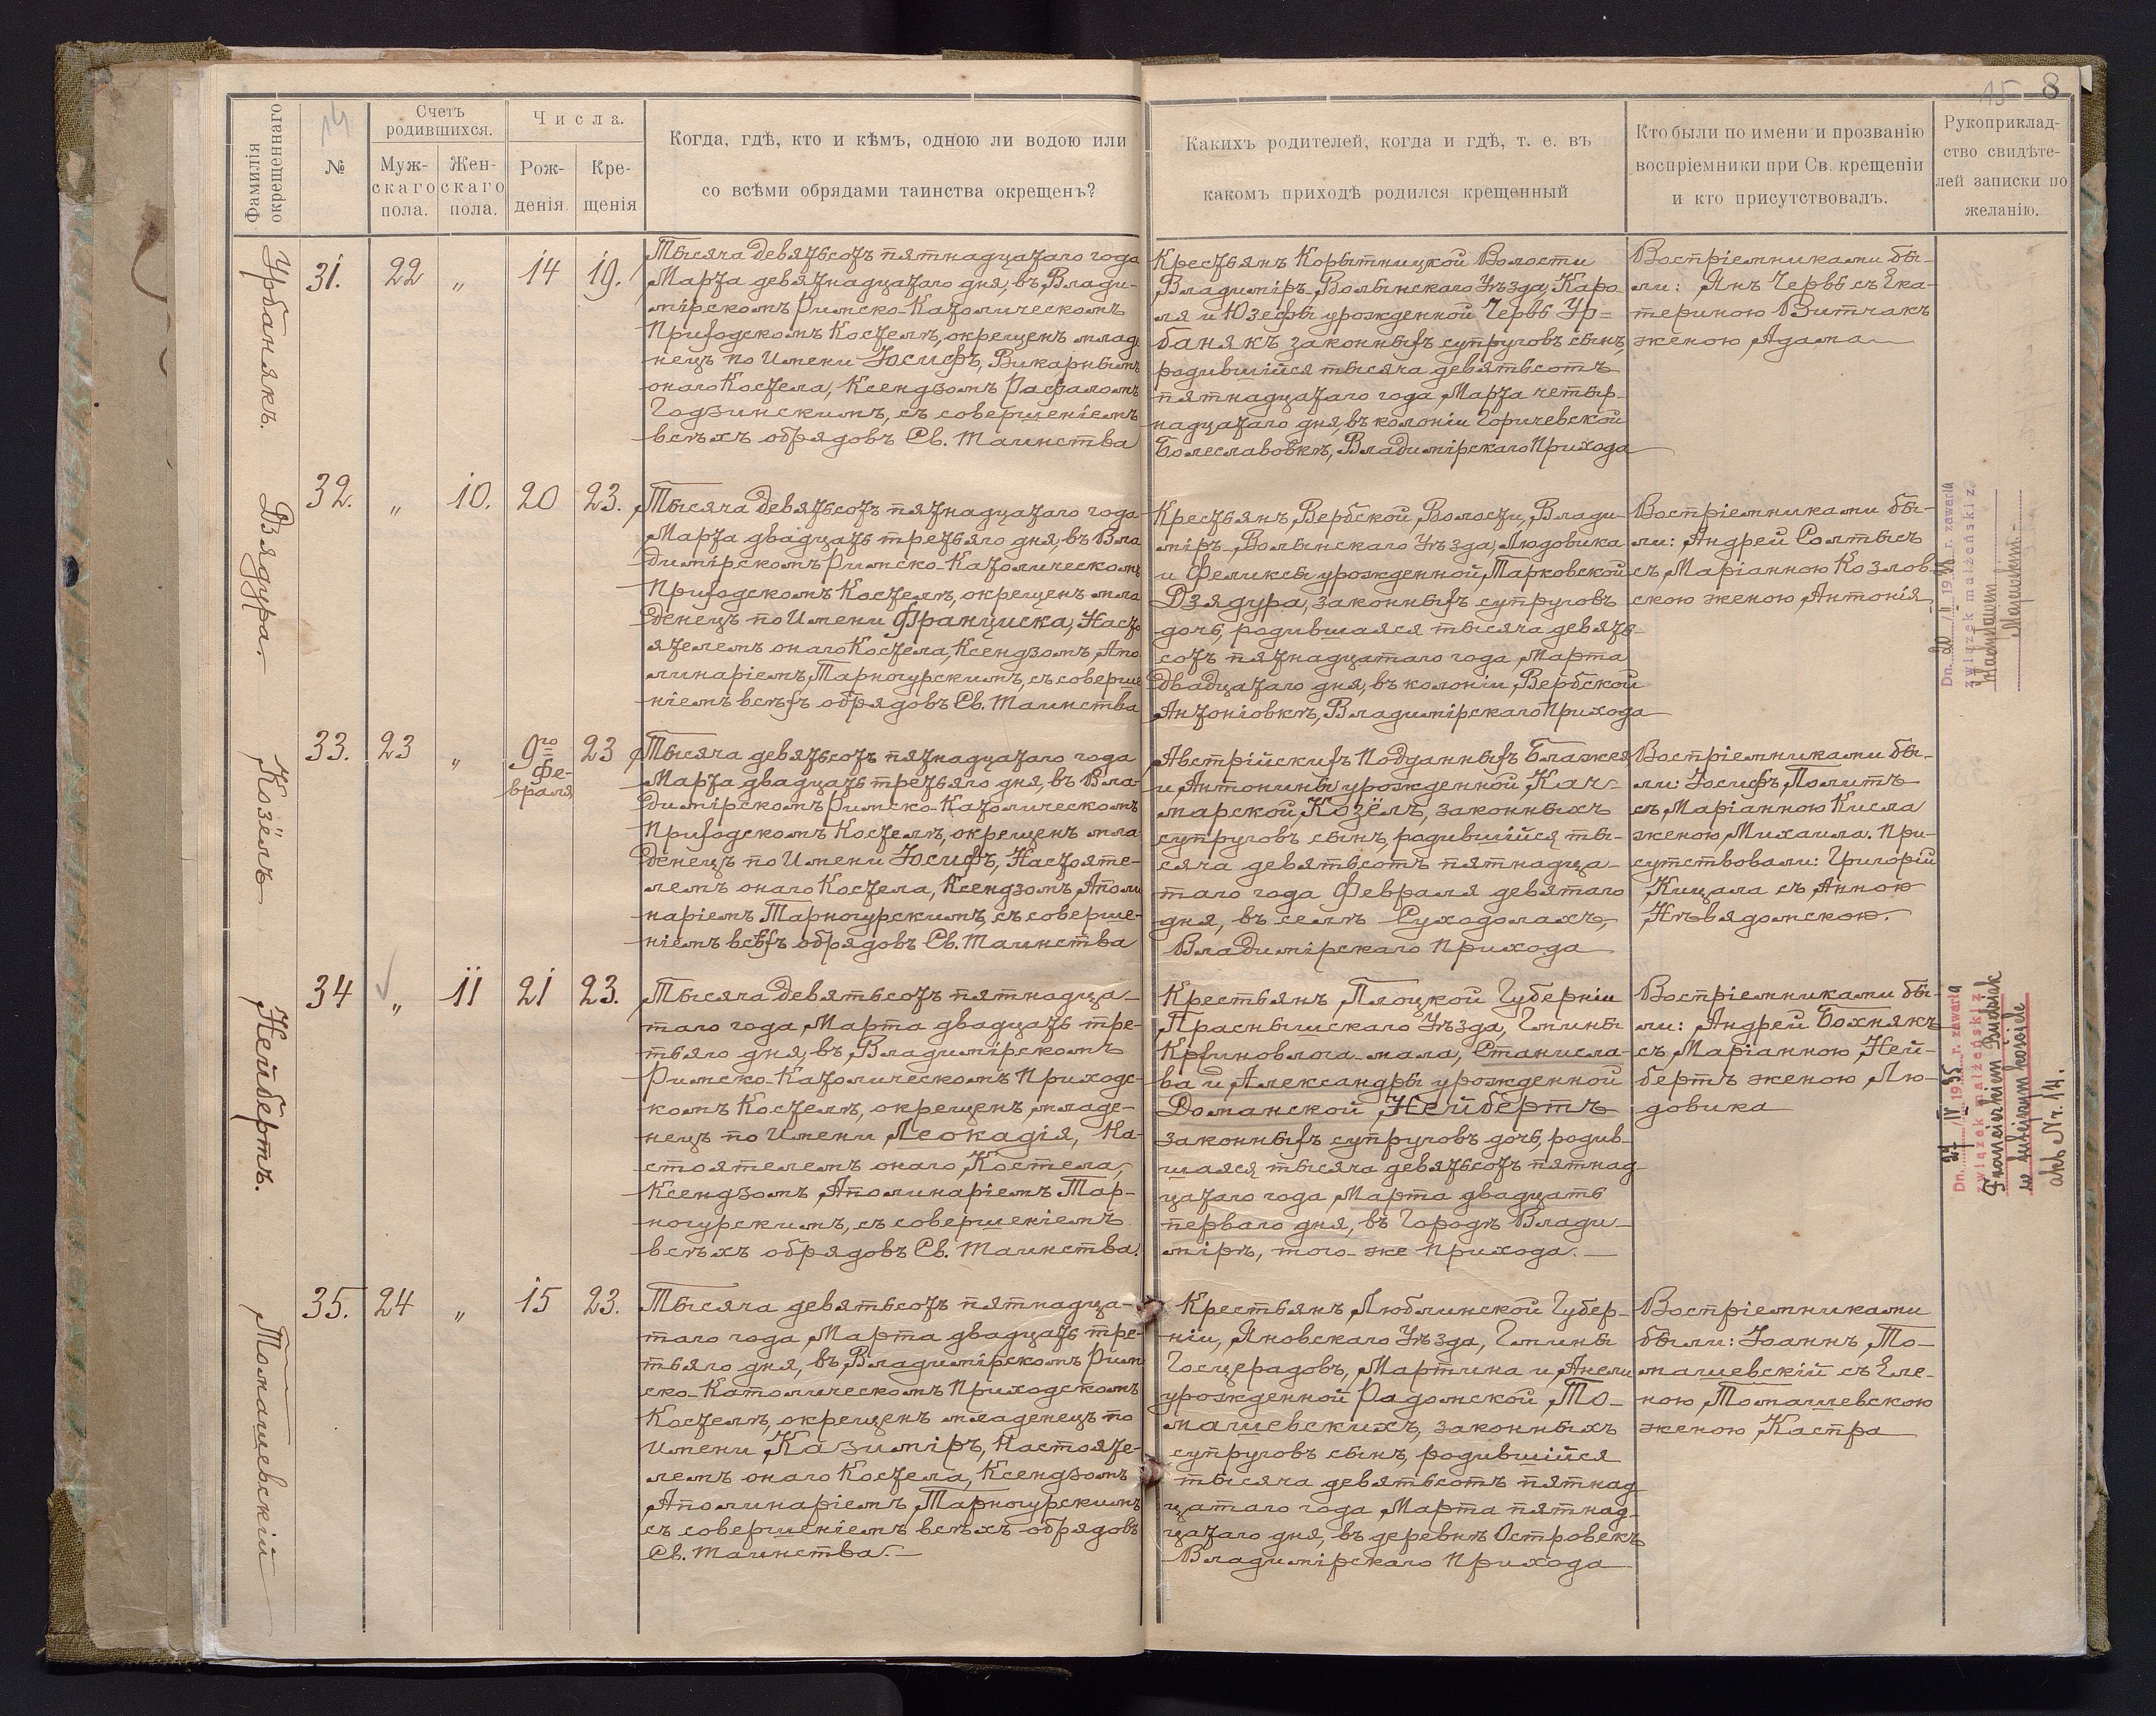 14
15 8
Фамилія окрещеннаго
№
Счетъ родившихся.
Муж-скаго пола.
Жен-скаго пола.
Числа.
Рож-денія.
Кре-щенія
Когда, гдѣ, кто и кѣмъ, одною ли водою или
со всѣми обрядами таинства окрещенъ?
Какихъ родителей, когда и гдѣ, т. е. въ
какомъ приходѣ родился крещенный
Кто были по имени и прозванію
воспріемники при Св. крещеніи
и кто присутствовалъ.
Рукоприклад-
ство свидѣте-
лей записки по
желанію.
Урбанякъ.
31. 22 „ 14 19.
Тысяча девятьсотъ пятнадцатаго года
Марта девятнадцатаго дня, въ Влади-
мірскомъ Римско-Католическомъ
Приходскомъ Костелѣ, окрещенъ млад
нецъ по Имени Іосифъ, Викарнымъ
онаго Костела, Ксендзомъ Рафаломъ
Годзинскимъ, съ совершеніемъ
всѣхъ обрядовъ Св. Таинства
Крестьянъ Корытницкой Волости
Владиміръ-Волынскаго Уѣзда, Каро
ля и Юзефы урожденной Червь Ур=
банякъ законныхъ супруговъ сынъ,
родившійся тысяча девятьсотъ
пятнадцатаго года Марта четыр-
надцатаго дня, въ колоніи Горичевской
Болеславовкѣ, Владимірскаго Прихода
Воспріемниками бы-
ли: Янъ Червь съ Ека-
териною Витчакъ
женою Адама
Дзядура
32. „ 10. 20 23.
Тысяча девятьсотъ пятнадцатаго года
Марта двадцать третьяго дня, въ Вла
димірскомъ Римско-Католическомъ
Приходскомъ Костелѣ, окрещенъ мла
денецъ по Имени Франциска, Насто
ятелемъ онаго Костела, Ксендзомъ Апо
линаріемъ Тарногурскимъ, съ соверше
ніемъ всѣхъ обрядовъ Св. Таинства
Крестьянъ, Вербской Волости, Влади-
міръ-Волынскаго Уѣзда, Людовика
и Феликсы урожденной Тарковской
Дзядура, законныхъ супруговъ
дочь, родившаяся тысяча девять-
сотъ пятнадцатаго года Марта
двадцатаго дня, въ колоніи Вербской
Антоніовкѣ, Владимірскаго Прихода
Воспріемниками бы-
ли: Андрей Солтысъ
съ Маріанною Козлов-
скою женою Антонія
Dn. 20/II 19 r. zawarła
związek małżeński z
Wacławem
Козёлъ
33. 23 „ 9го Фе-враля 23
Тысяча девятьсотъ пятнадцатаго года
Марта двадцать третьяго дня, въ Вла-
димірскомъ Римско-Католическомъ
Приходскомъ Костелѣ, окрещенъ мла
денецъ по Имени Іосифъ, Настояте-
лемъ онаго Костела, Ксендзомъ Аполи
наріемъ Тарногурскимъ, съ соверше-
ніемъ всѣхъ обрядовъ Св. Таинства
Австрійскихъ Подданныхъ Блажея
и Антонины урожденной Кач-
марской, Козёлъ, законныхъ
супруговъ сынъ, родившійся ты-
сяча девятьсотъ пятнадца-
таго года Февраля девятаго
дня, въ селѣ Суходолахъ,
Владимірскаго Прихода
Воспріемниками бы-
ли: Іосифъ Политъ
съ Маріанною Кисла
женою Михаила. При-
сутствовали: Григорій
Кицала съ Анною
Нѣвядомскою.
Нейбертъ.
34 „ 11 21 23.
Тысяча девятьсотъ пятнадца-
таго года Марта двадцать тре-
тьяго дня, въ Владимірскомъ
Римско-Католическомъ Приходс-
комъ Костелѣ, окрещенъ младе-
нецъ по Имени Леокадія, На-
стоятелемъ онаго Костела,
Ксендзомъ Аполинаріемъ Тар-
ногурскимъ, съ совершеніемъ
всѣхъ обрядовъ Св. Таинства.
Крестьянъ Плоцкой Губерніи
Праснышскаго Уѣзда, Гмины
Крhиновлога-мала, Станисла-
ва и Александры урожденной
Доманской Нейбертъ
законныхъ супруговъ дочь, родив-
шаяся тысяча девятьсотъ пятнад-
цатаго года Марта двадцать
перваго дня, въ Городѣ Влади-
мірѣ, того-же Прихода.
Воспріемниками бы-
ли: Андрей Бохнякъ
съ Маріанною Ней-
бертъ женою Лю-
довика
Dn. 24/IV 1935 r. zawarła
związek małżeński z
Franciszkiem
w tutejszym kościele
akt Nr. 14.
Томашевскій
35. 24 „ 15 23.
Тысяча девятьсотъ пятнадца-
таго года Марта двадцать тре-
тьяго дня, въ Владимірскомъ Рим
ско-Католическомъ Приходскомъ
Костелѣ, окрещенъ младенецъ по
Имени Казиміръ, Настояте-
лемъ онаго Костела, Ксендзомъ
Аполинаріемъ Тарногурскимъ
съ совершеніемъ всѣхъ обрядовъ
Св. Таинства.
Крестьянъ Люблинской Губер-
ніи, Яновскаго Уѣзда, Гмины
Госцерадовъ, Мартина и Анели
урожденной Радомской, То-
машевскихъ, законныхъ
супруговъ сынъ, родившійся
тысяча девятьсотъ пятнад
цатаго года Марта пятнад-
цатаго дня, въ деревнѣ Островекъ
Владимірскаго Прихода
Воспріемниками
были: Іоаннъ То-
машевскій съ Еле-
ною Томашевскою
женою Каспра